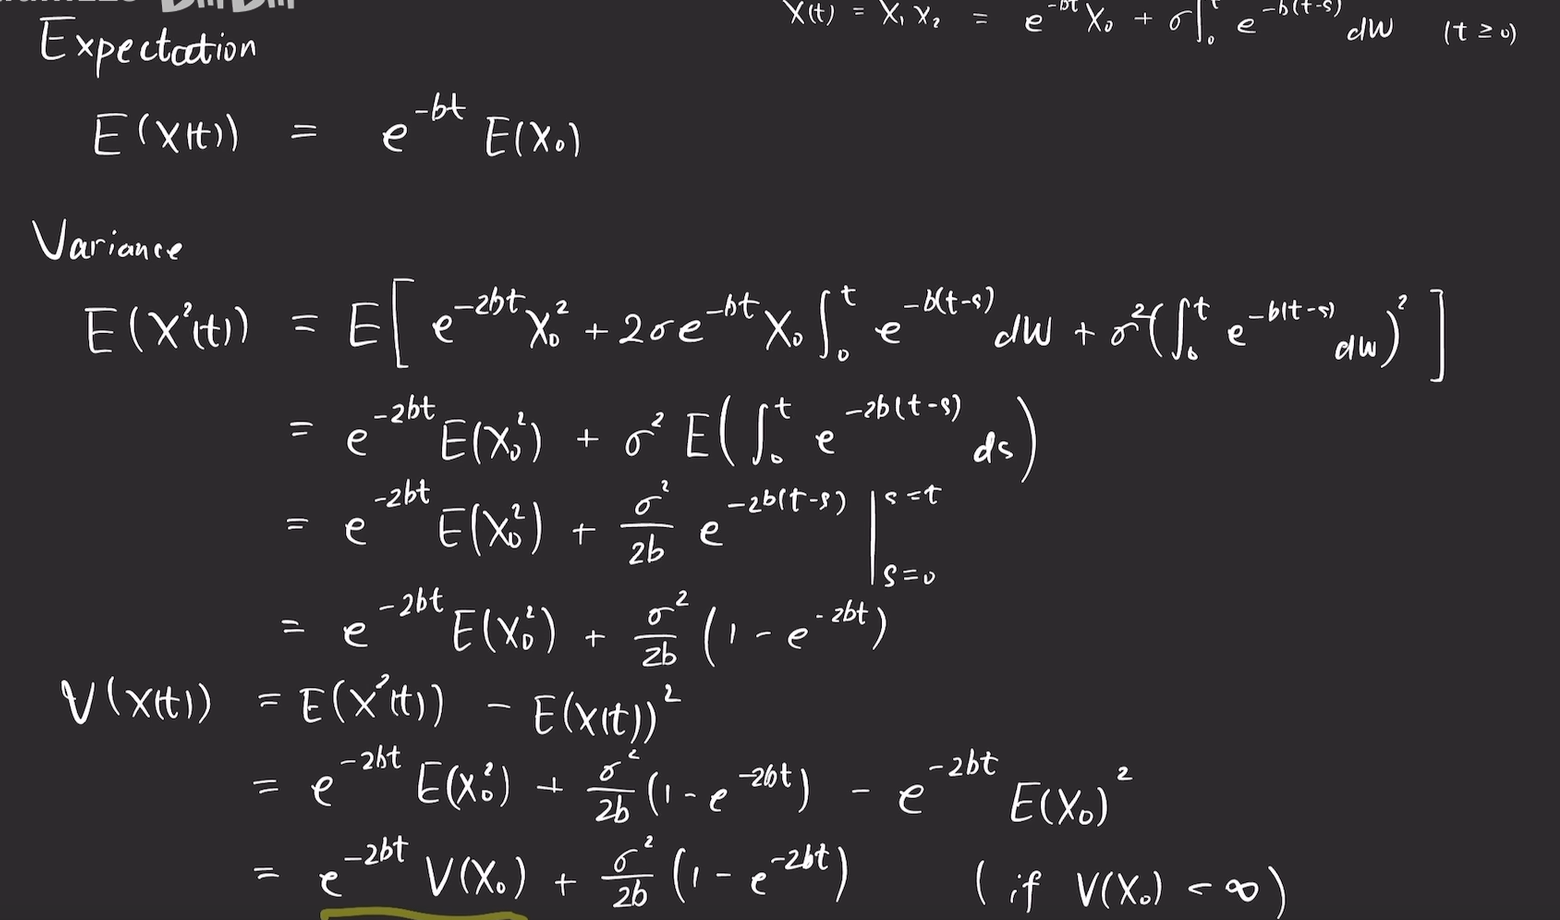 X(t) = X₁ X₂ = e^{-bt} X₀ + σ∫₀ᵗ e^{-b(t-s)} dW (t ≥ 0)
Expectation
E(X(t)) = e^{-bt} E(X₀)
Variance
E(X²(t)) = E[ e^{-2bt} X₀² + 2σe^{-bt} X₀ ∫₀ᵗ e^{-b(t-s)} dW + σ²(∫₀ᵗ e^{-b(t-s)} dW)² ]
= e^{-2bt} E(X₀²) + σ² E(∫₀ᵗ e^{-2b(t-s)} ds)
= e^{-2bt} E(X₀²) + σ²/2b e^{-2b(t-s)} |_{s=0}^{s=t}
= e^{-2bt} E(X₀²) + σ²/2b (1 - e^{-2bt})
V(X(t)) = E(X²(t)) - E(X(t))²
= e^{-2bt} E(X₀²) + σ²/2b (1 - e^{-2bt}) - e^{-2bt} E(X₀)²
= e^{-2bt} V(X₀) + σ²/2b (1 - e^{-2bt}) (if V(X₀) < ∞)